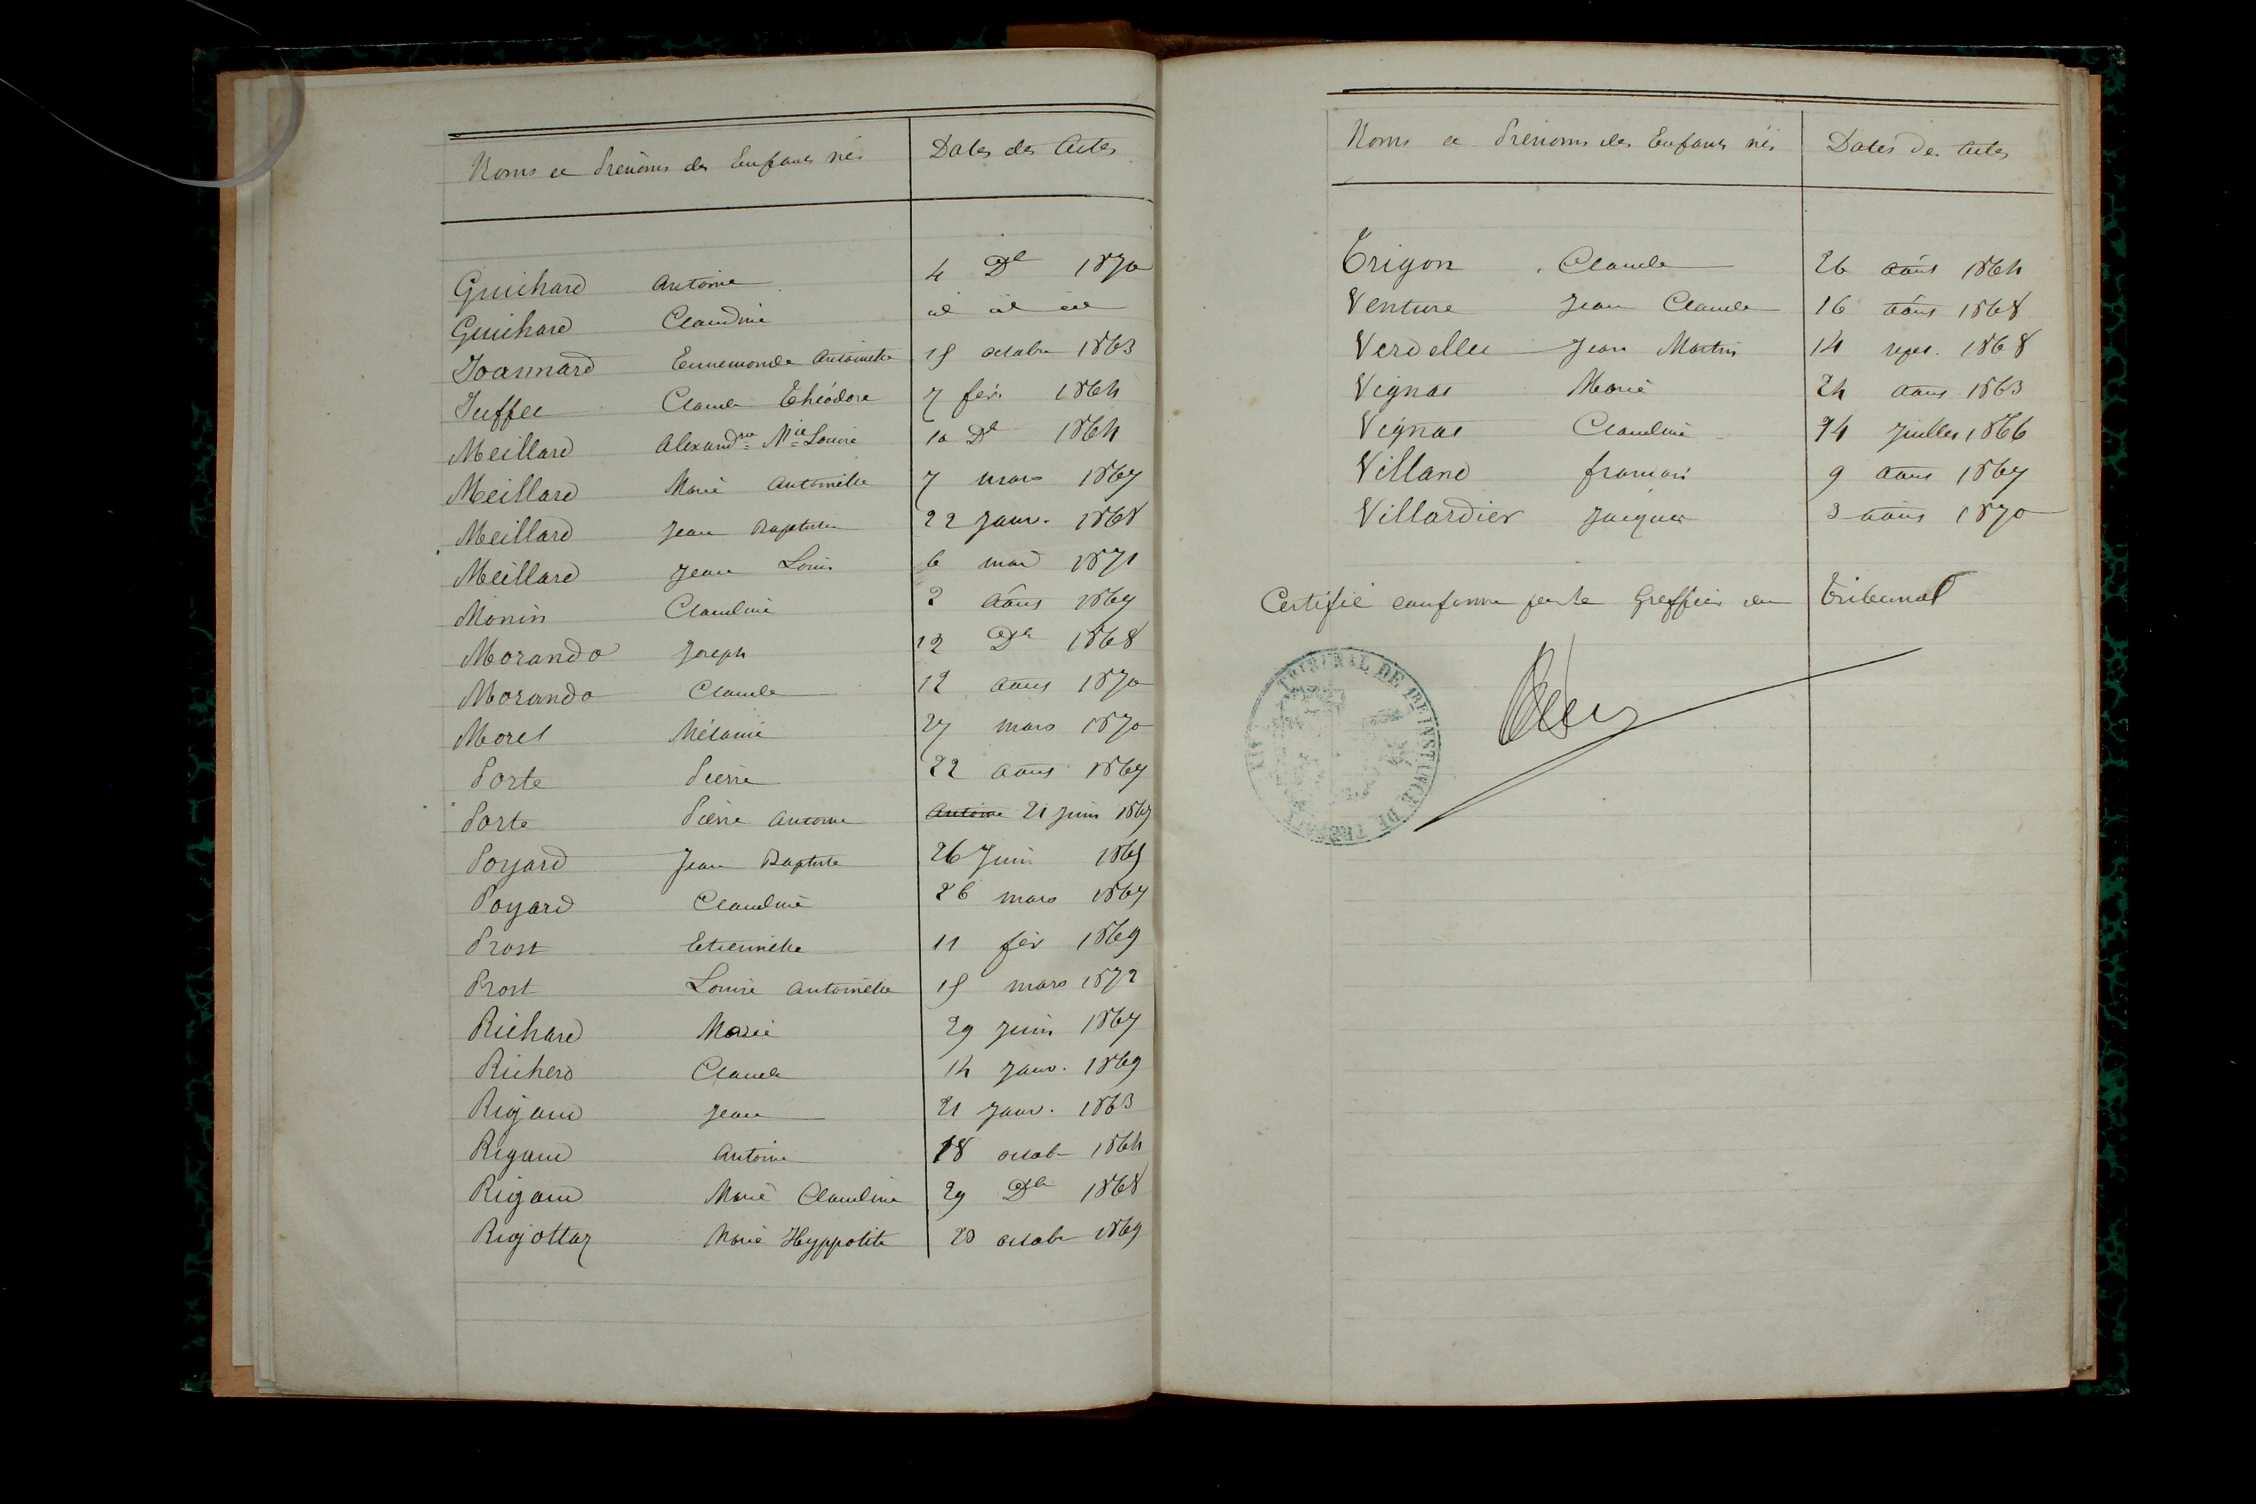 Noms et Prénoms des Enfants nés Dates des Actes
Guichard Antoine 4 Dbe 1870
Guichard Claudine id id id
Joannard Ennemonde Antoinette 15 octobre 1863
Juffet Claude Théodore 7 fév. 1864
Meillard Alexandrne Mie Louise 10 Dbe 1864
Meillard Marie Antoinette 7 mars 1867
Meillard Jean Baptiste 22 Janv. 1868
Meillard Jean Louis 6 1871
Monin Claudine 2 août 1867
Morando Joseph 12 Dbe 1868
Morando Claude 12 août 1870
Morel Mélanie 27 mars 1870
Porte Pierre 22 août 1867
Porte Pierre Antoine Antoine 21 Juin 1869
Poyard Jean Baptiste 26 Juin 1865
Poyard Claudine 26 mars 1867
Prost Etiennette 11 fév 1869
Prost Louise Antoinette 15 mars 1872
Richard Marie 29 Juin 1867
Richero Claude 14 Janv. 1869
Rigaud Jean 21 Janv. 1863
Rigaud Antoine 18 octob 1864
Rigaud Marie Claudine 29 Dbe 1868
Rigottaz Marie Hyppolite 20 octob 1869
Noms et Prénoms des Enfants nés Dates des Actes
Trigon Claude 26 août 1864
Venture Jean Claude 16 août 1868
Verdellet Jean Martin 14 sept. 1868
Vignat Marie 24 août 1863
Vignat Claudine 24 Juillet 1866
Villand françois 9 août 1867
Villardier Jacques 3 août 1870
Certifié conforme par le Greffier du Tribunal
TRIBUNAL DE 1RE INSTANCE DE TRÉVOUX